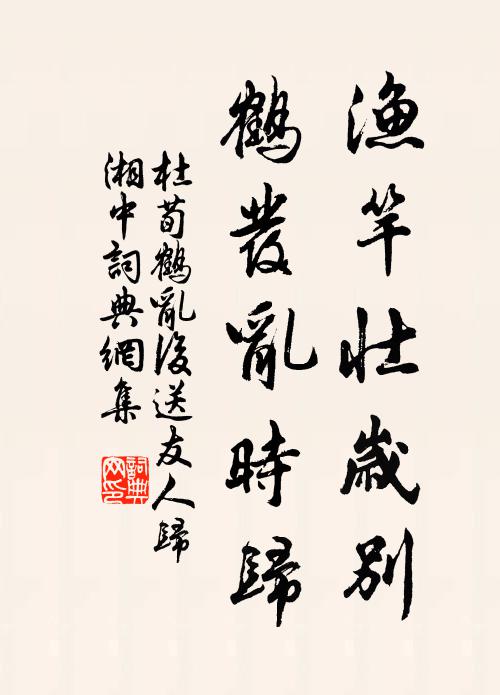 漁竿壯歲別
鶴發亂時歸
杜荀鶴亂後送友人歸
湘中詞典網集
詞典網印